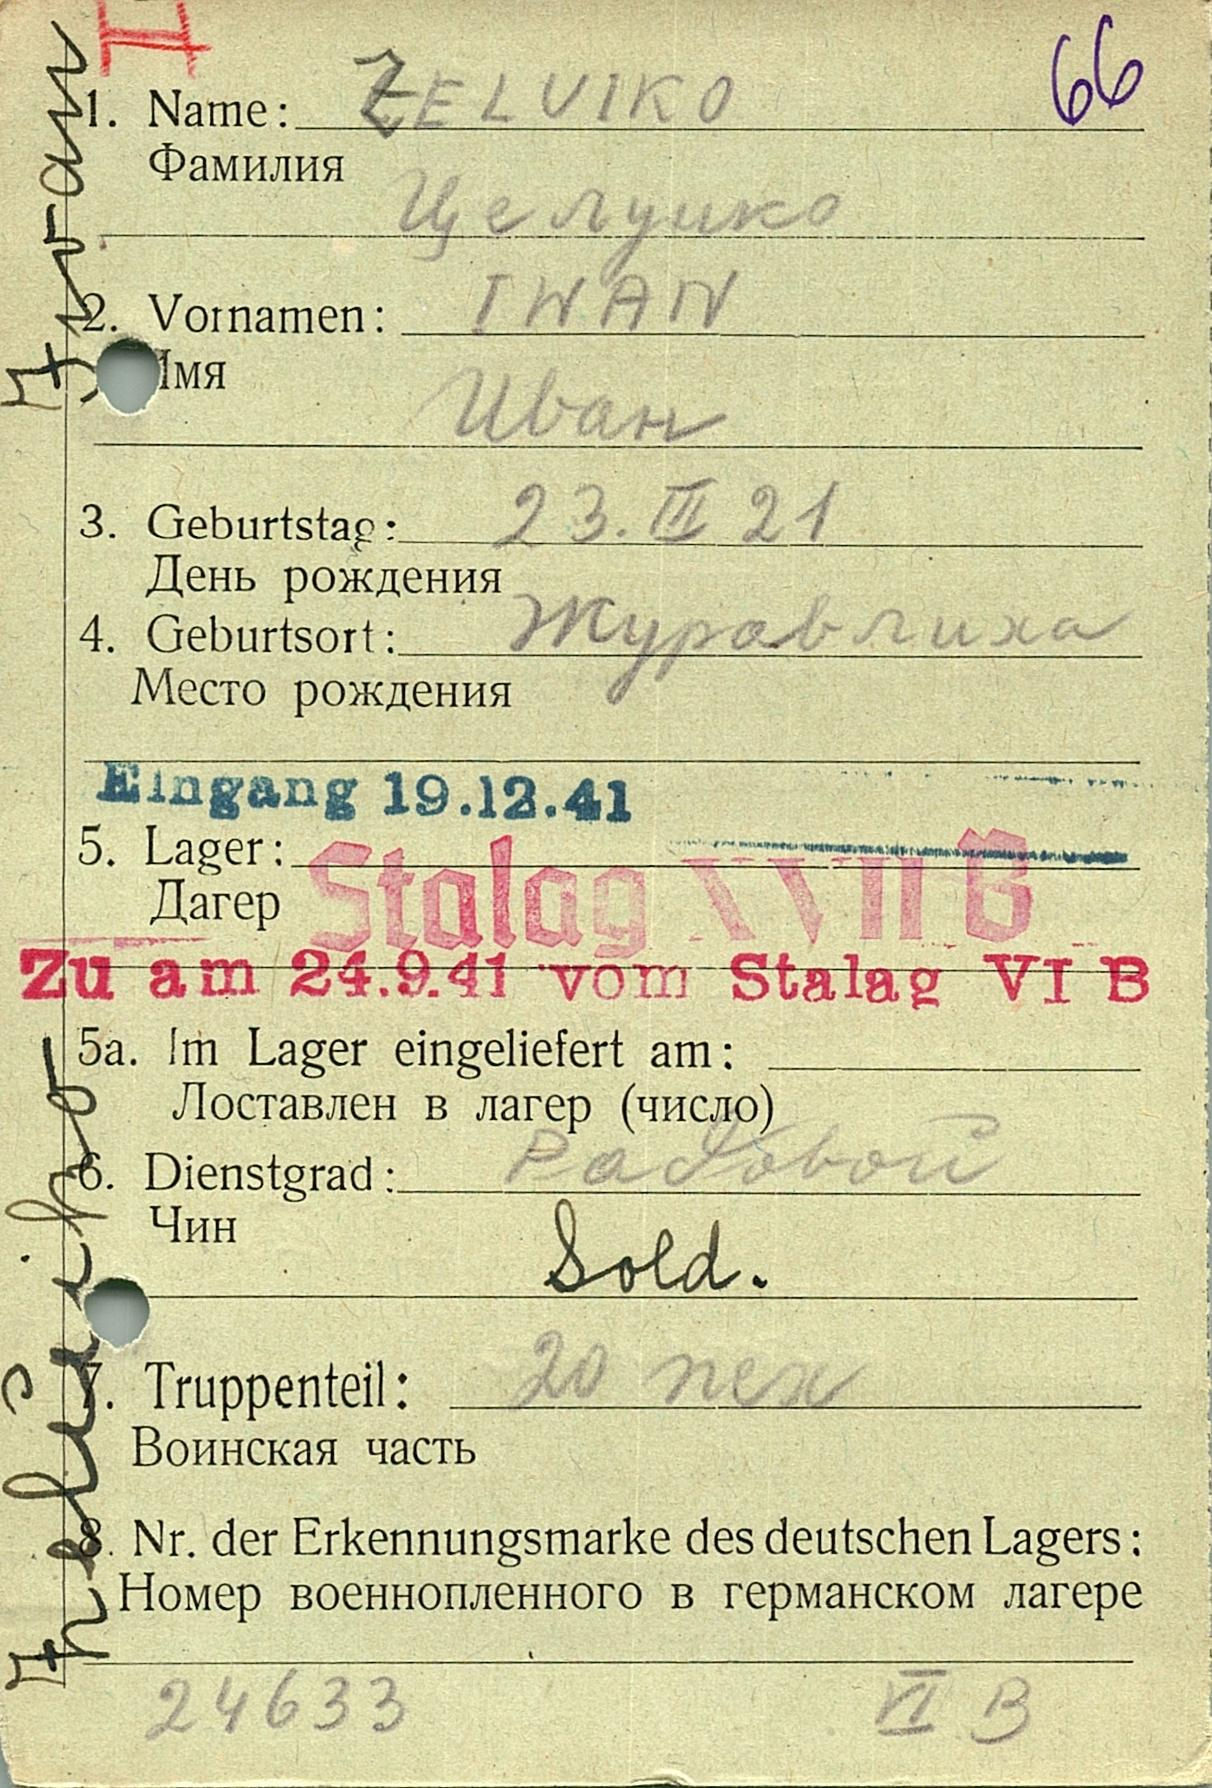 II
66
1. Name: ZELUIKO
Фамилия
Целуико
2. Vornamen: IWAN
Имя
Иван
3. Geburtstag: 23. III 21
День рождения
4. Geburtsort: Журавлиха
Место рождения
Eingang 19.12.41
5. Lager: Stalag XVII B
Дагер
Zu am 24.9.41 vom Stalag VI B
5a. Im Lager eingeliefert am:
Лоставлен в лагер (число)
6. Dienstgrad: Радовой
Чин
Sold.
7. Truppenteil: 20 пех
Воинская часть
8. Nr. der Erkennungsmarke des deutschen Lagers:
Номер военнопленного в германском лагере
24633 VI B
Iwan